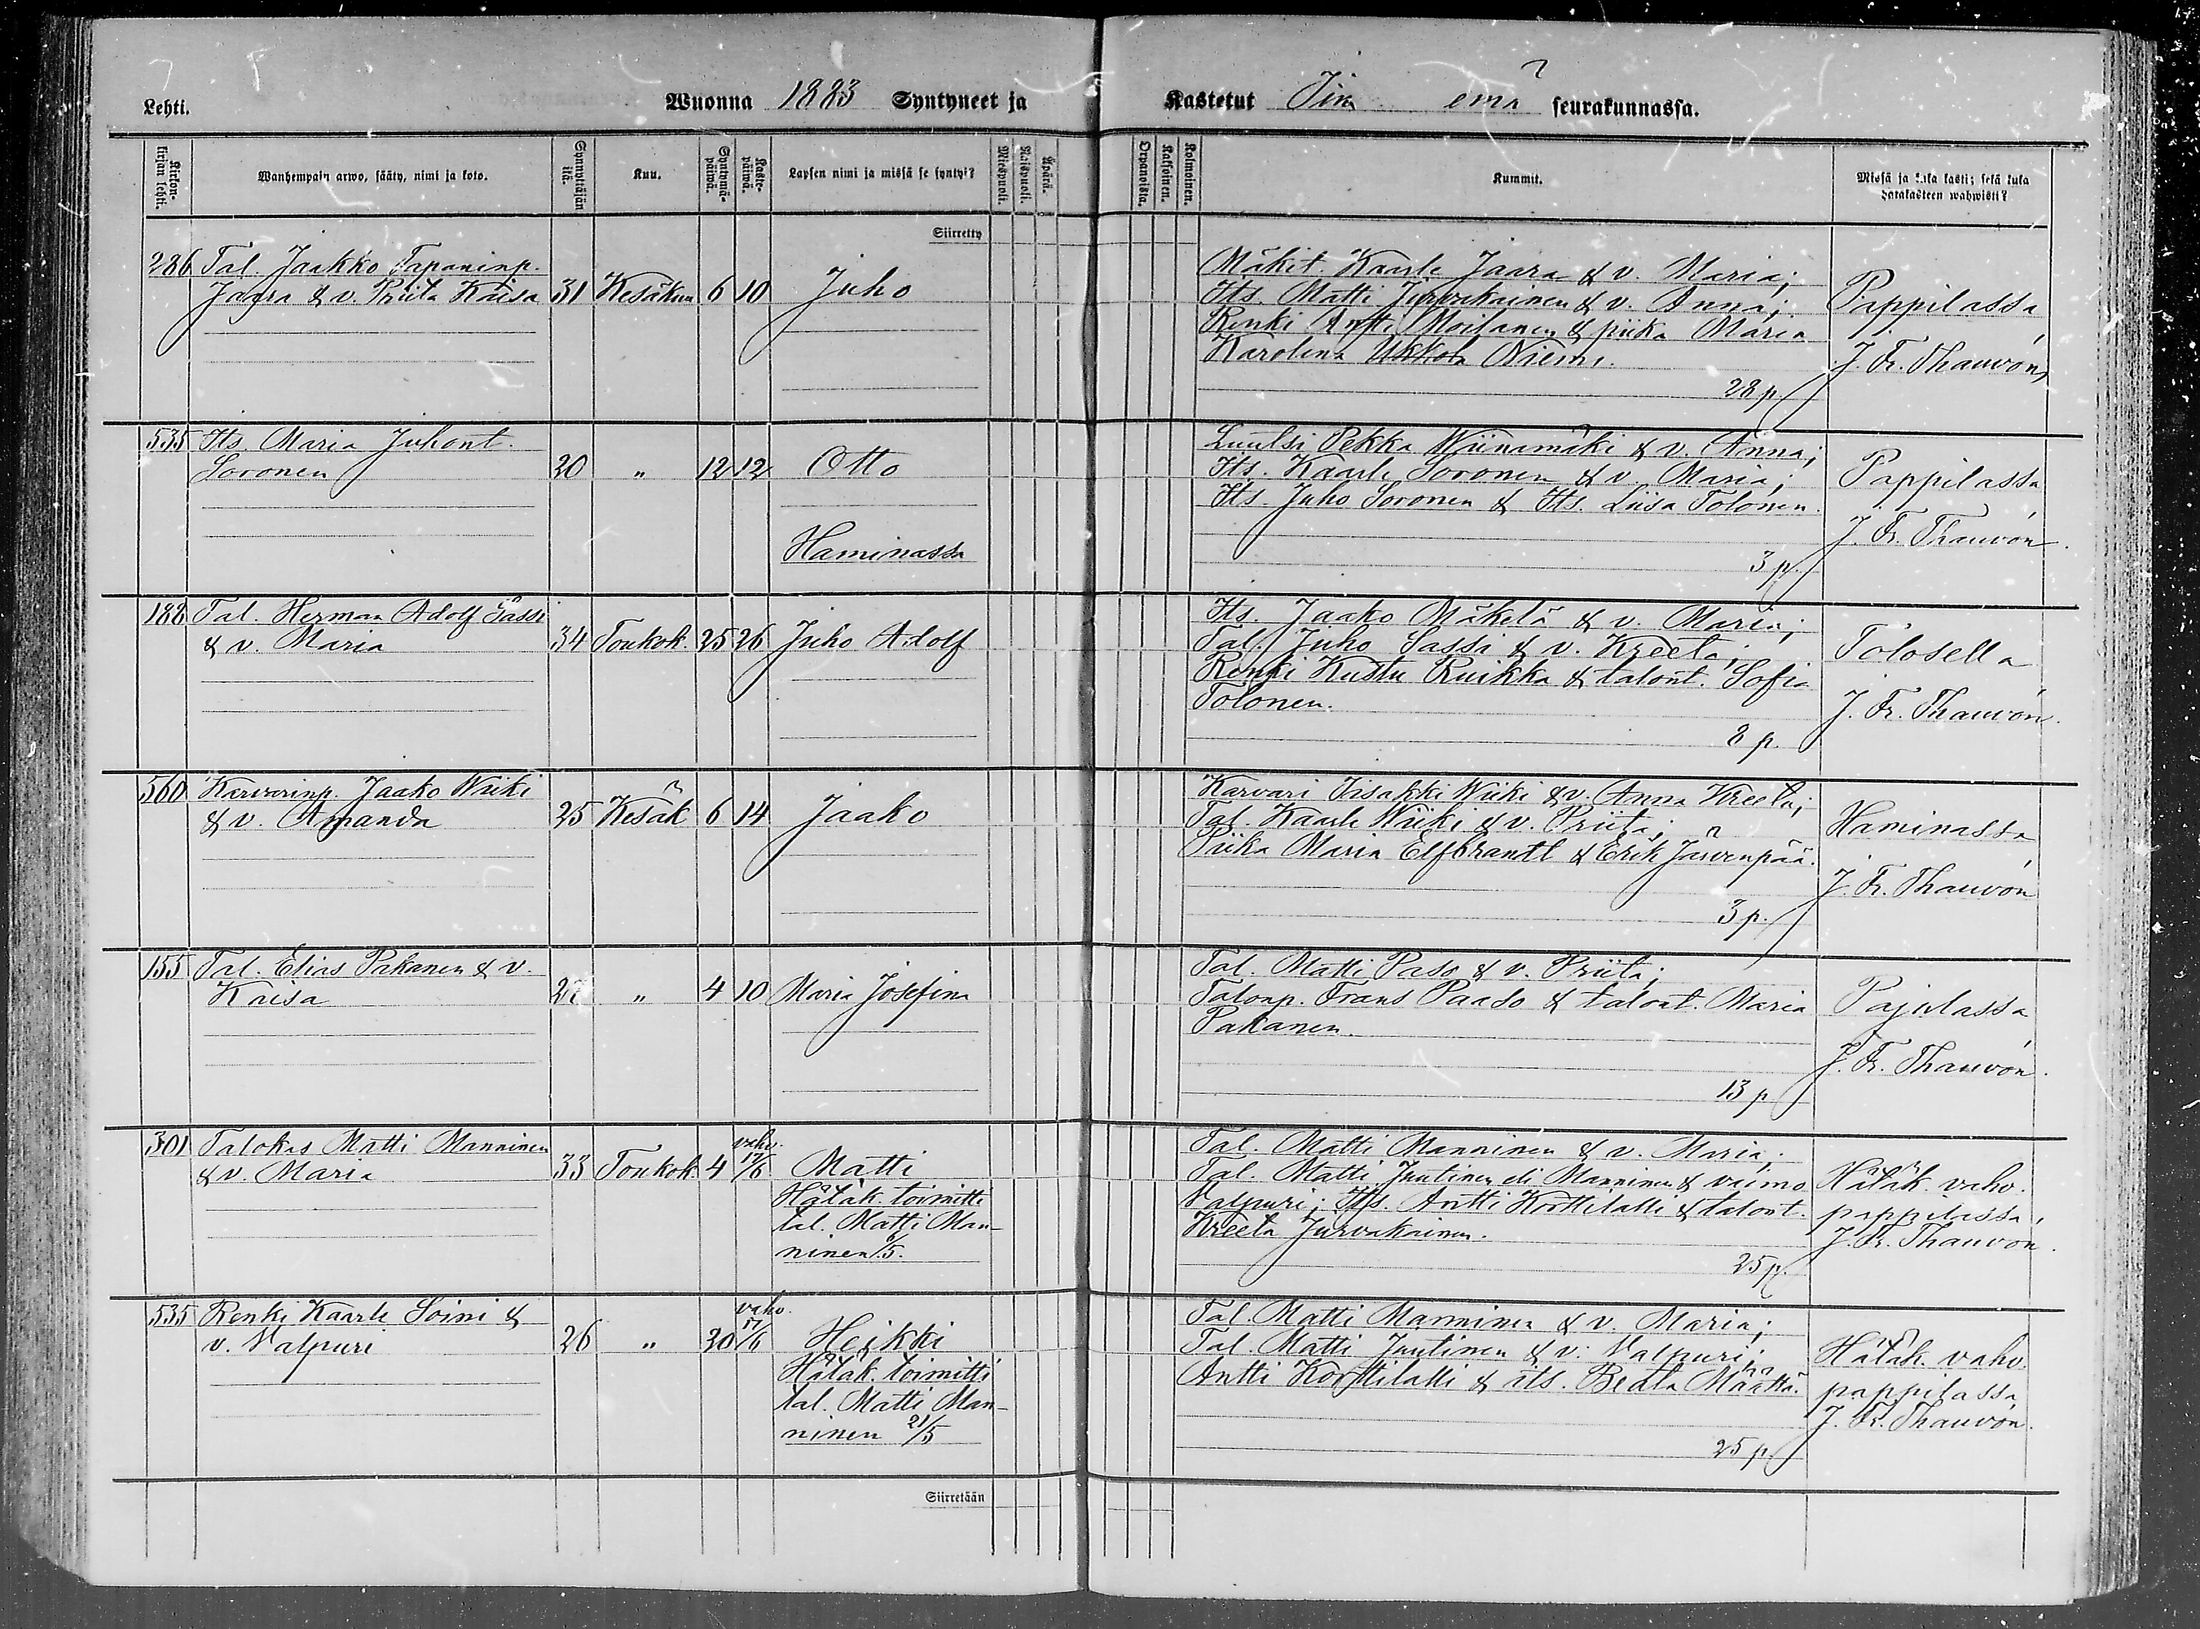 Lehti.
Wuonna 1883 Syntyneet ja
Kastetut Iin emä seurakunnassa.
Kirkon-kirjan lehti.
Wanhempain arwo, sääty, nimi ja koto.
Synnyttäjän ikä.
Kuu.
Syntymä-päiwä.
Kaste-päiwä.
Lapsen nimi ja missä se syntyi?
Miespuoli.
Naispuoli.
Äpärä.
Orpanoista.
Kaksoinen.
Kolmoinen.
Kummit.
Missä ja kuka kasti; sekä kuka
hätäkasteen wahwisti?
Siirretty
286 Tal. Jaakko Tapaninp.
Jaara & v. Priita Kaisa 31 Kesäkuu 6 10 Juho
Mäkit. Kaarle Jaara & v. Maria;
Its. Matti Jurvakainen & v. Anna;
Renki Antti Moilanen & piika Maria
Karolina Ukkola Niemi.
28 p.
Pappilassa
J. Fr. Thauvón
535 Its. Maria Juhont.
Soronen 20 " 12 12 Otto
Haminassa
Luutsi Pekka Wiinamäki & v. Anna;
Its. Kaarle Soronen & v. Maria;
Its. Juho Soronen & Its. Liisa Tolonen.
3 p.
Pappilassa
J. Fr. Thauvón.
188 Tal. Herman Adolf Sassi
& v. Maria 34 Toukok. 25 26 Juho Adolf
Its. Jaako Mäkelä & v. Maria;
Tal. Juho Sassi & v. Kreeta;
Renki Kustu Ruikka & talont. Sofia
Tolonen.
8 p.
Tolosella
J. Fr. Thauvón.
560 Karvarinp. Jaako Wiiki
& v. Amanda 25 Kesäk 6 14 Jaako
Karvari Iisakki Wiiki & v. Anna Kreeta;
Tal. Kaarle Wiiki & v. Priita;
Piika Maria Elfbrantl & Erik Järvenpää.
3 p.
Haminassa
J. Fr. Thauvón
155 Tal. Elias Pakanen & v.
Kaisa 27 " 4 10 Maria Josefina
Tal. Matti Paso & v. Priita;
Talonp. Frans Paaso & talont. Maria
Pakanen.
13 p
Pajulassa
J. Fr. Thauvón.
301 Talokas Matti Manninen
& v. Maria 33 Toukok. 4 vahv. 17/6 Matti
Hätäk. toimitti
tal. Matti Man-
ninen 6/5.
Tal. Matti Manninen & v. Maria;
Tal. Matti Juutinen eli Manninen & vaimo
Valpuri; Its. Antti Korttilatti & talont.
Kreeta Jurvakainen.
25 p.
Hätäk. vahv.
pappilassa,
J. Fr. Thauvón.
535 Renki Kaarle Soini &
v. Valpuri 26 " 20 vahv. 17/6 Heikki
Hätäk. toimitti
tal. Matti Man-
ninen 21/5
Tal. Matti Manninen & v. Maria;
Tal. Matti Juutinen & v. Valpuri;
Antti Korttilatti & its. Beata Määttä.
25 p
Hätäk. vahv.
pappilassa,
J. Fr. Thauvón.
Siirretään